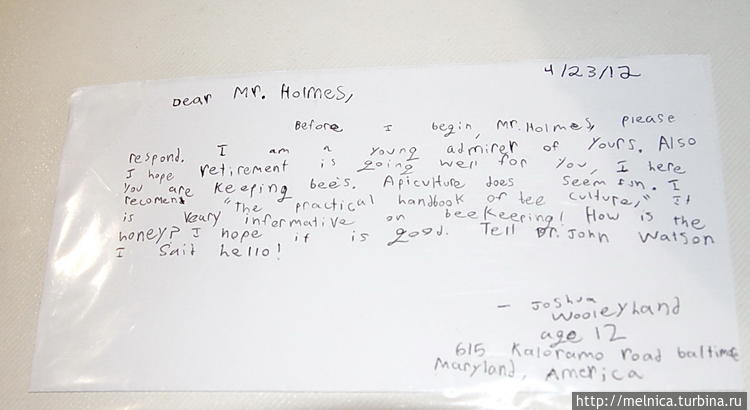 4/23/12
Dear Mr. Holmes,
Before I begin, Mr. Holmes, please
respond. I am a young admirer of yours. Also
I hope retirement is going well for you, I here
you are keeping bee's. Apiculture does seem fun. I
recoment "the practical handbook of bee culture," It
is veary informative on beekeeping! How is the
honey? I hope it is good. Tell Dr. John Watson
I sait hello!
- Joshua
Wooleyhand
age 12
615 Kaloramo road baltimore
Maryland, America
http://melnica.turbina.ru